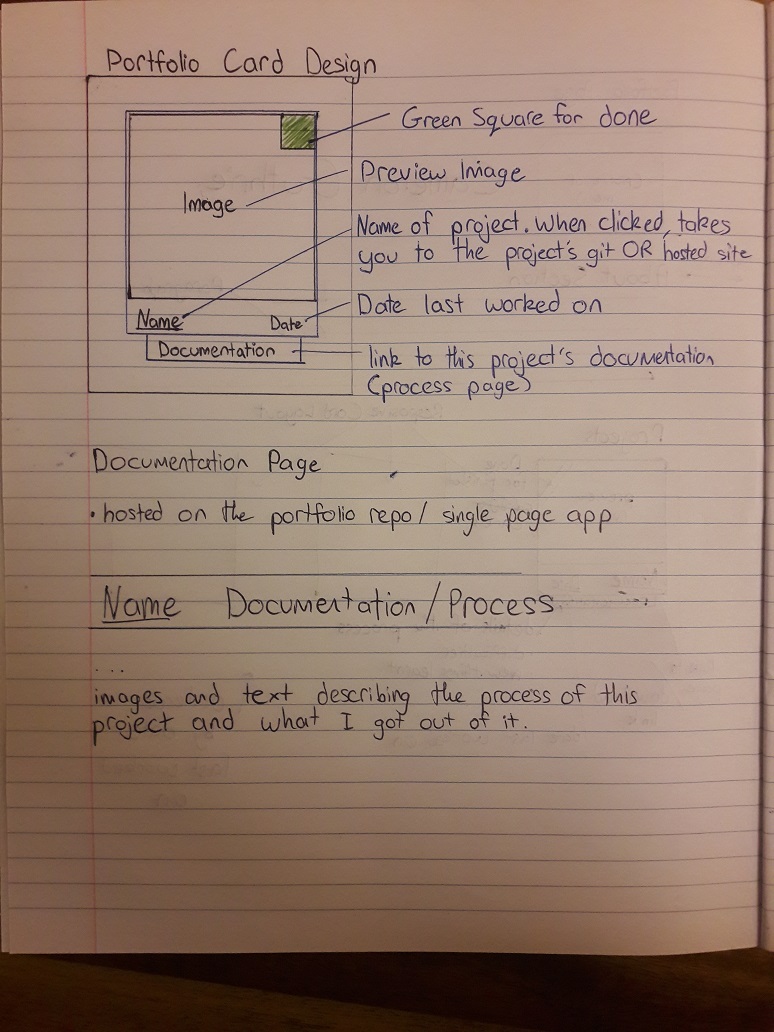 Portfolio Card Design
Green Square for done
Preview Image
Image
Name of project. When clicked, takes
you to the project's git OR hosted site
Date last worked on
Name
Date
Documentation
link to this project's documentation
(process page)
Documentation Page
• hosted on the portfolio repo / single page app
Name Documentation/Process
...
images and text describing the process of this
project and what I got out of it.